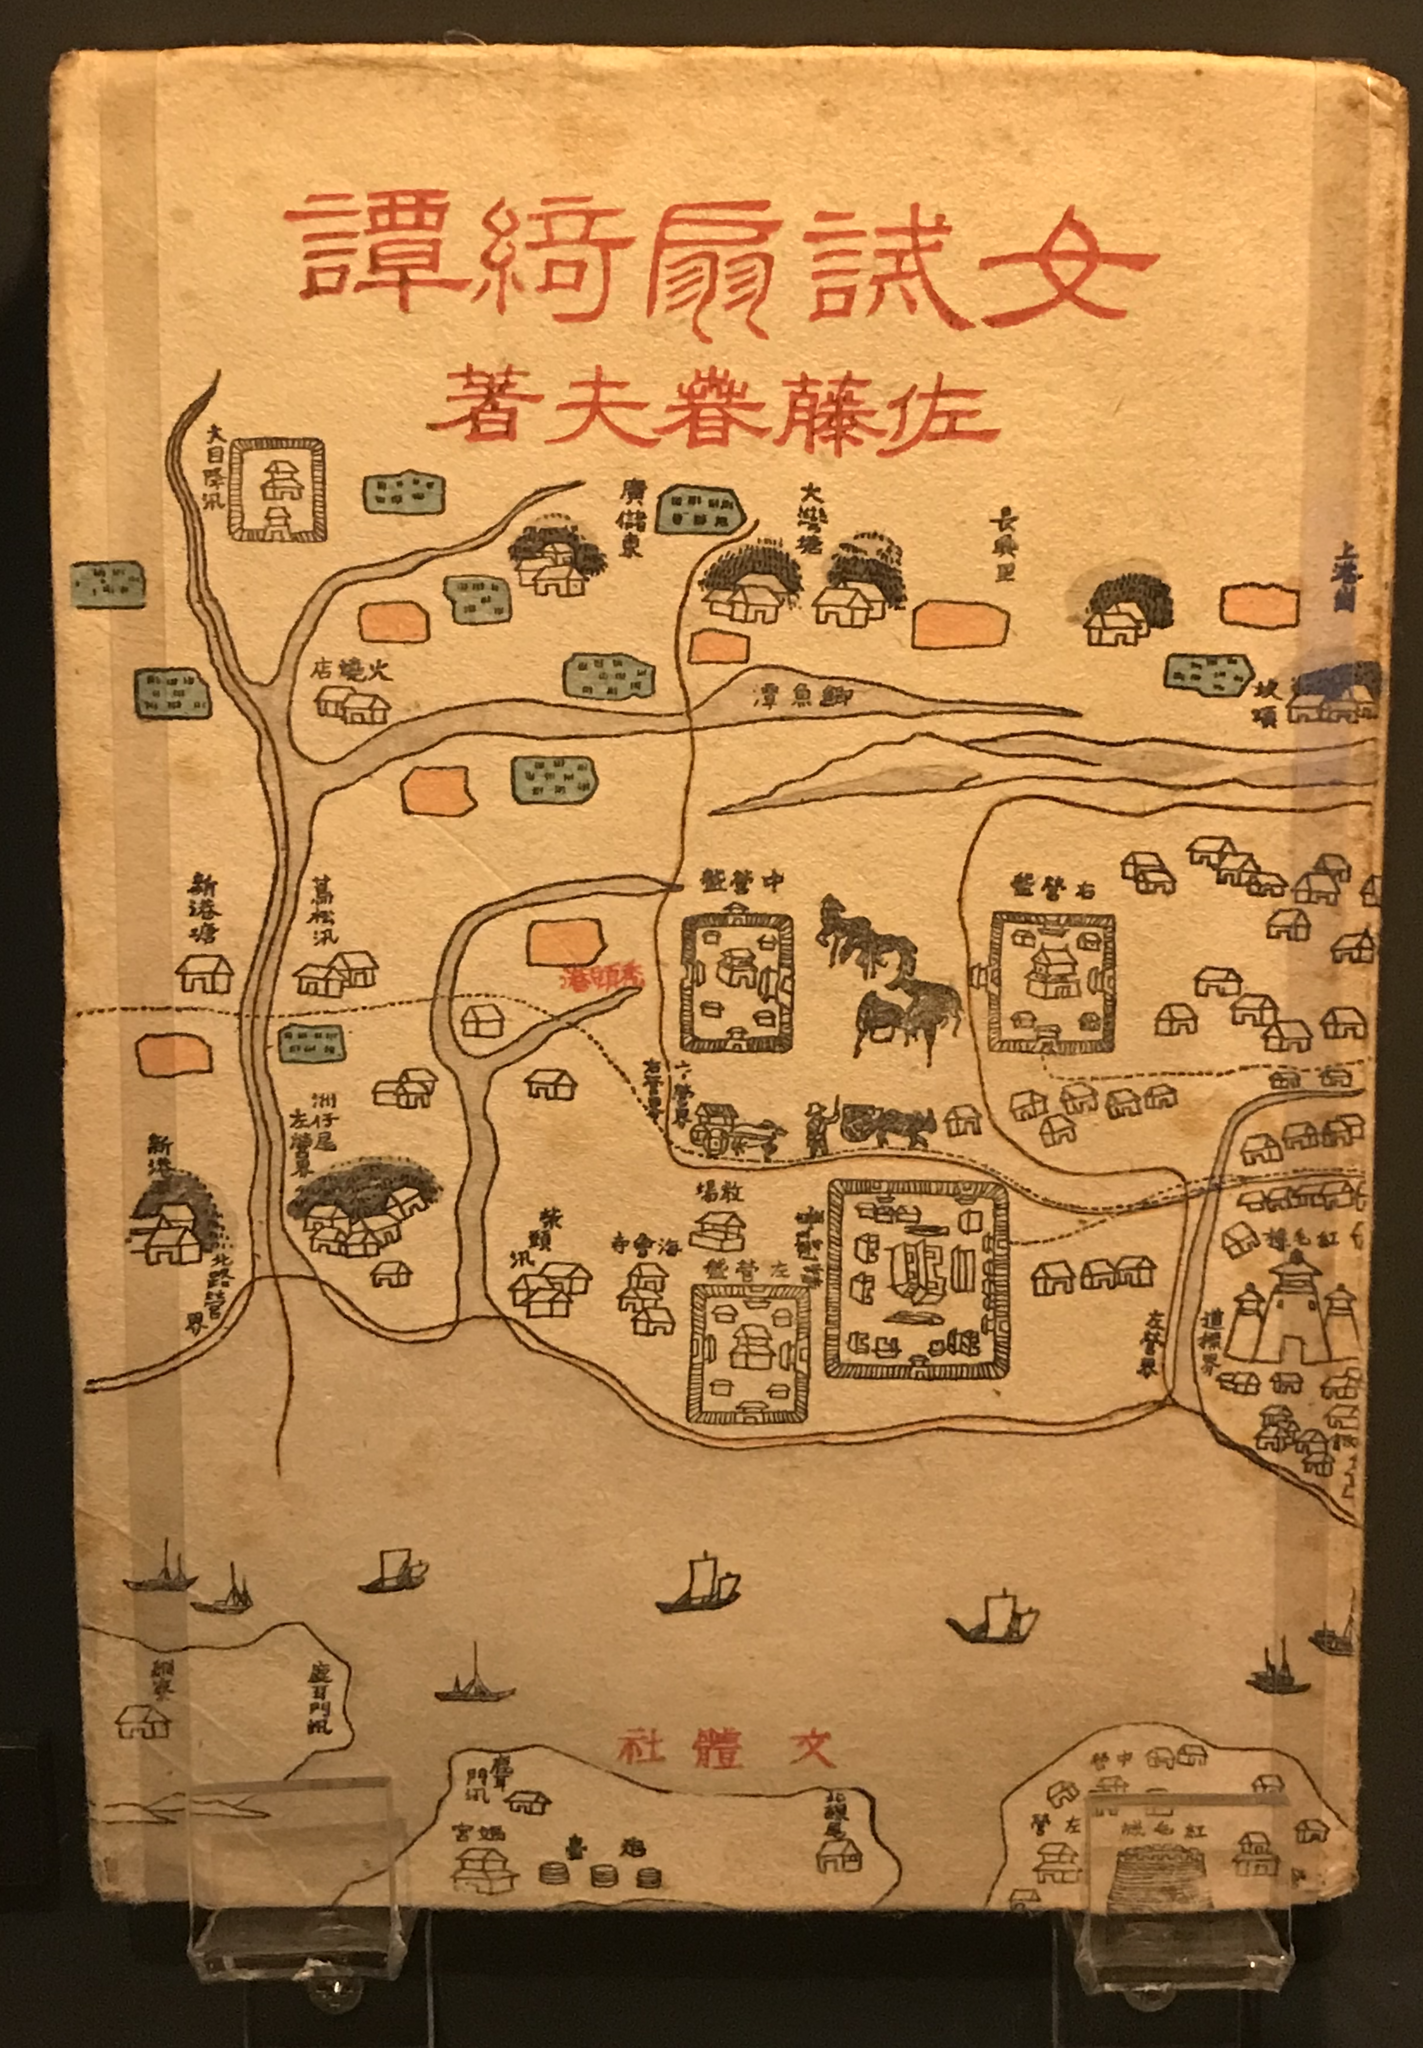 女誡扇綺譚
佐藤春夫著
大目降汛
廣儲東
大灣塘
長興里
上港崗
火燒店
鯽魚潭
坡頭
新港塘
蔦松汛
中營盤
右營盤
秀頭港
右營界
六營界
洲仔尾
左營界
新港
北路營
界
柴頭
汛
海會寺
敎場
左營盤
臺灣縣
紅毛樓
左營界
道標界
鹿耳門汛
文體社
鹿耳
門汛
媽宮
炮臺
北線尾
中營
左營
紅毛城